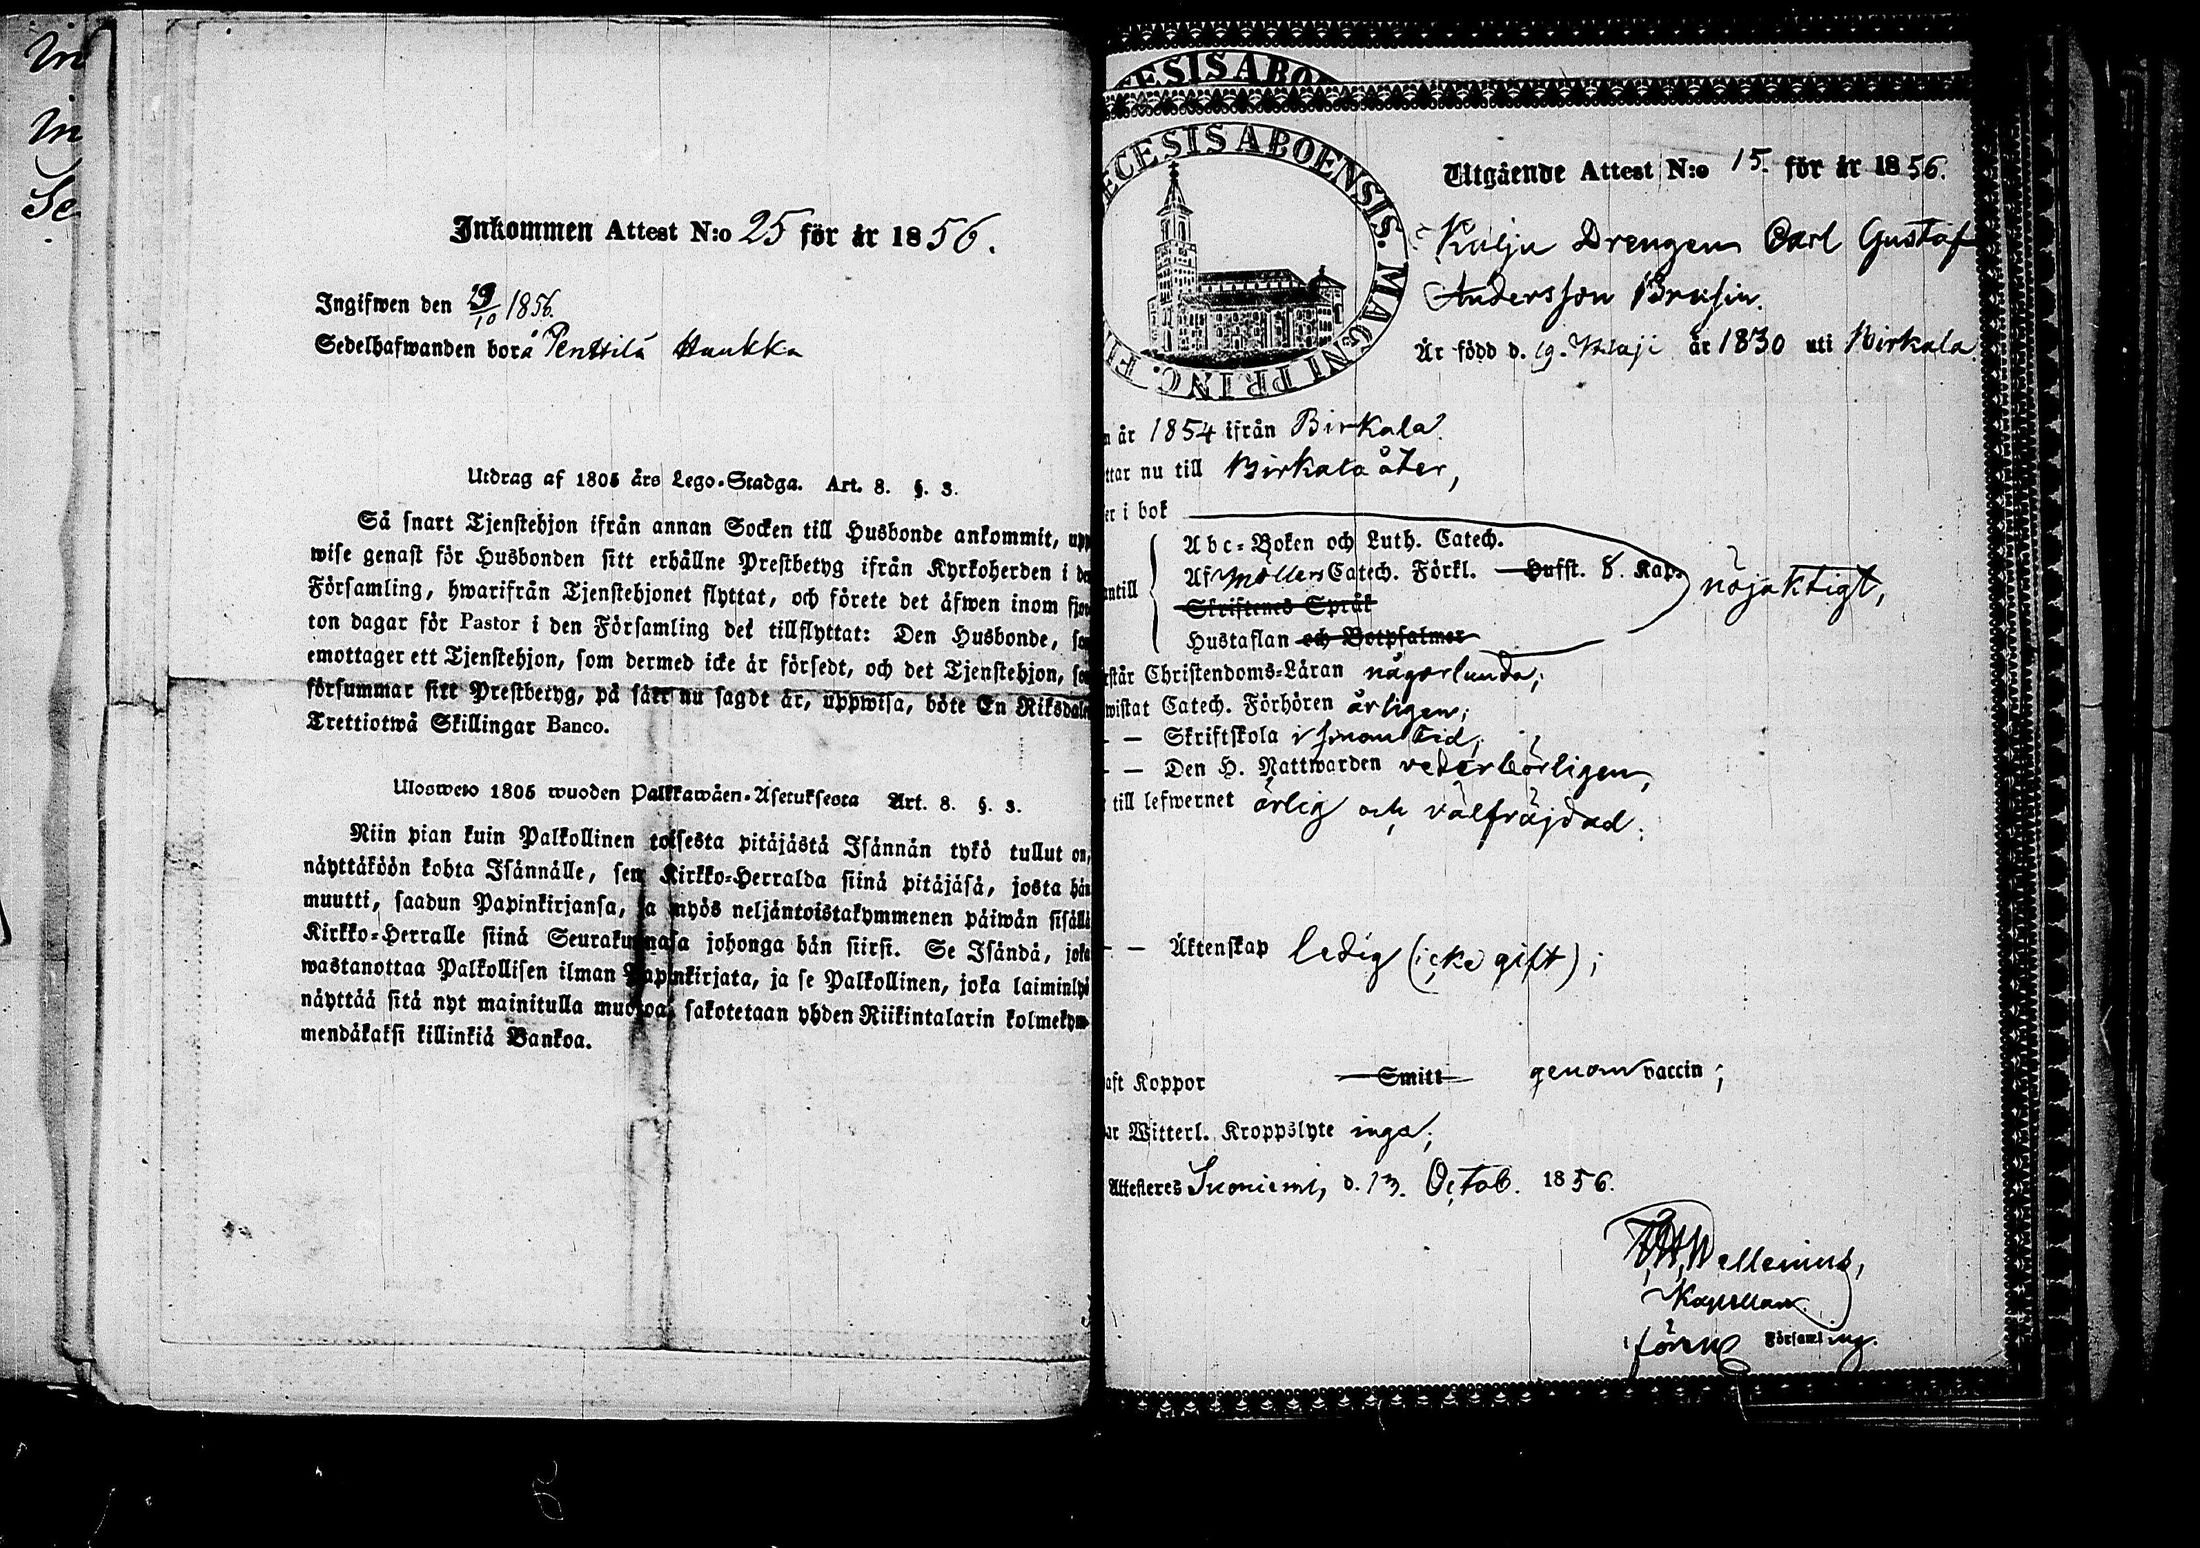 Inkommen Attest N:o 25 för år 1856.
Ingifwen den 29/10 1856.
Sedelhafwanden bor å Penttilä Haukka
Utdrag af 1805 års Lego-Stadga. Art. 8. §. 3.
Så snart Tjenstehjon ifrån annan Socken till Husbonde ankommit, upp
wise genast för Husbonden sitt erhållne Prestbetyg ifrån Kyrkoherden i den
Församling, hwarifrån Tjenstehjonet flyttat, och förete det äfwen inom fjor
ton dagar för Pastor i den Församling det tillflyttat: Den Husbonde, som
emottager ett Tjenstehjon, som dermed icke är försedt, och det Tjenstehjon, som
försummar sitt Prestbetyg, på sätt nu sagdt är, uppwisa, böte En Riksdaler
Trettiotwå Skillingar Banco.
Ulosweto 1805 wuoden Palkkawäen-Asetuksesta Art. 8. §. 3.
Niin pian kuin Palkollinen toisesta pitäjästä Isännän tykö tullut on,
näyttäköön kohta Isännälle, sen Kirkko-Herralda siinä pitäjäsä, josta hän
muutti, saadun Papinkirjansa, ja myös neljäntoistakymmenen päiwän sisällä
Kirkko-Herralle siinä Seurakunnasa johonga hän siirsi. Se Isändä, joka
wastanottaa Palkollisen ilman Papinkirjata, ja se Palkollinen, joka laiminlyö
näyttää sitä nyt mainitulla muotoa, sakotetaan yhden Riikintalarin kolmekym-
mendäkaksi killinkiä Bankoa.
ESIS ABO
ECESIS ABOENSIS. MAGNI PRINC. FI
Utgående Attest N:o 15. för år 1856.
Drengen Carl Gustaf
Andersson
Är född d. 19. Maji år 1830 uti Birkala
n år 1854 ifrån Birkala.
ttar nu till Birkala åter,
er i bok
Abc-Boken och Luth. Catech.
Af Möllers Catech. Förkl. Hufst. 8. Kap.
antill
nöjaktigt,
Skriftenes Språk
Hustaflan och Botpsalmer
rstår Christendoms-Läran någorlunda;
wistat Catech. Förhören årligen;
– – Skriftskola i sinom tid;
– – Den H. Nattwarden vederbörligen,
till lefwernet ärlig och välfräjdad;
– – Äktenskap ledig (icke gift);
aft Koppor Smitt genom vaccin;
ar Witterl. Kroppslyte inga;
Attesteres Suoniemi, d. 13. Octob. 1856.
Wellenius,
Kapellan
i fören Församling.